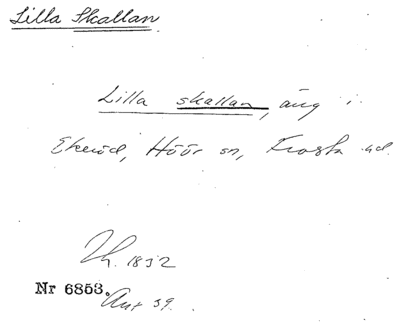 Lilla Skallan
Lilla skallan, äng i
Ekeröd, Höör sn, Frosta hd.
Lh. 1832
Nr 6853.
Ant 39.